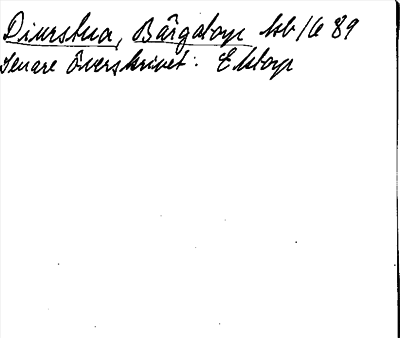 Diurstua, Bårgatorp kb/6 89
Senare överskrivet: Ektorp